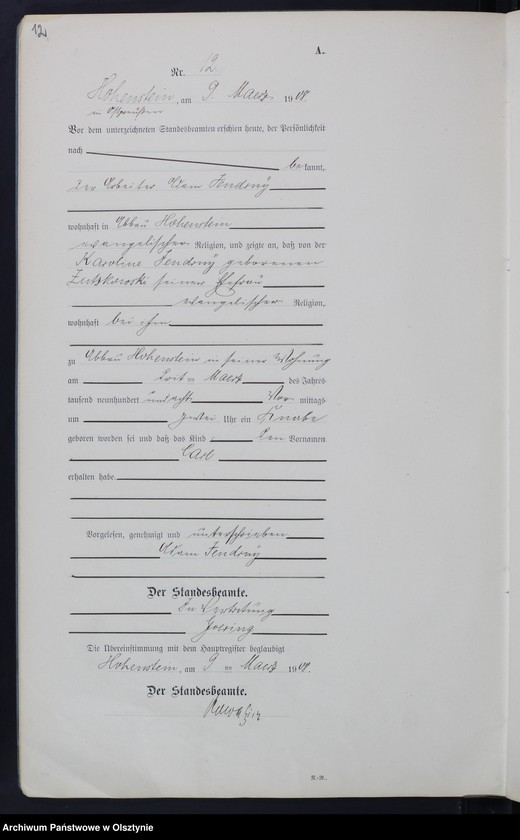 12.
A.
Nr. 12
Hohenstein, am 9. Maerz 1908
in Ostpreußen
Vor dem unterzeichneten Standesbeamten erschien heute, der Persönlichkeit
nach
bekannt,
der Arbeiter Adam Jendony
wohnhaft in Abbau Hohenstein
evangelischer Religion, und zeigte an, daß von der
Karoline Jendony geborenen
seiner Ehefrau
evangelischer Religion,
wohnhaft bei ihm
zu Abbau Hohenstein in seiner Wohnung
am Maerz des Jahres
tausend neunhundert und acht Vormittags
um Uhr ein Knabe
geboren worden sei und daß das Kind den Vornamen
Carl
erhalten habe.
Vorgelesen, genehmigt und unterschrieben
Adam Jendony
Der Standesbeamte.
In Vertretung
Goering
Die Übereinstimmung mit dem Hauptregister beglaubigt
Hohenstein, am 9 ten Maerz 1908.
Der Standesbeamte.
Archiwum Państwowe w Olsztynie